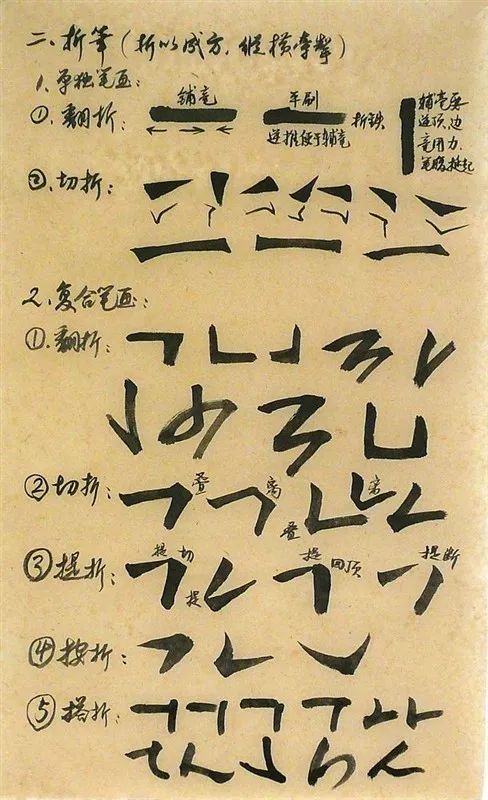 二、折笔（折以成方，纵横牵掣）
1、单独笔画：
①、翻折： 铺毫 平刷 逆推便于铺毫 折钗
铺毫要
逆顶，边
毫用力，
笔腹提起
②、切折：
2、复合笔画：
①、翻折：
②切折： 叠 离 叠 离
③提折： 提 切 提 提 回顶 提断
④按折：
⑤搭折：